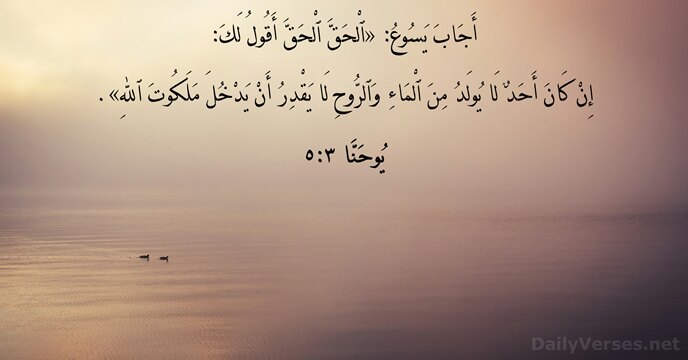 أَجَابَ يَسُوعُ: «ٱلْحَقَّ ٱلْحَقَّ أَقُولُ لَكَ:
إِنْ كَانَ أَحَدٌ لَا يُولَدُ مِنَ ٱلْمَاءِ وَٱلرُّوحِ لَا يَقْدِرُ أَنْ يَدْخُلَ مَلَكُوتَ ٱللهِ» .
يُوحَنَّا ٣:٥
DailyVerses.net